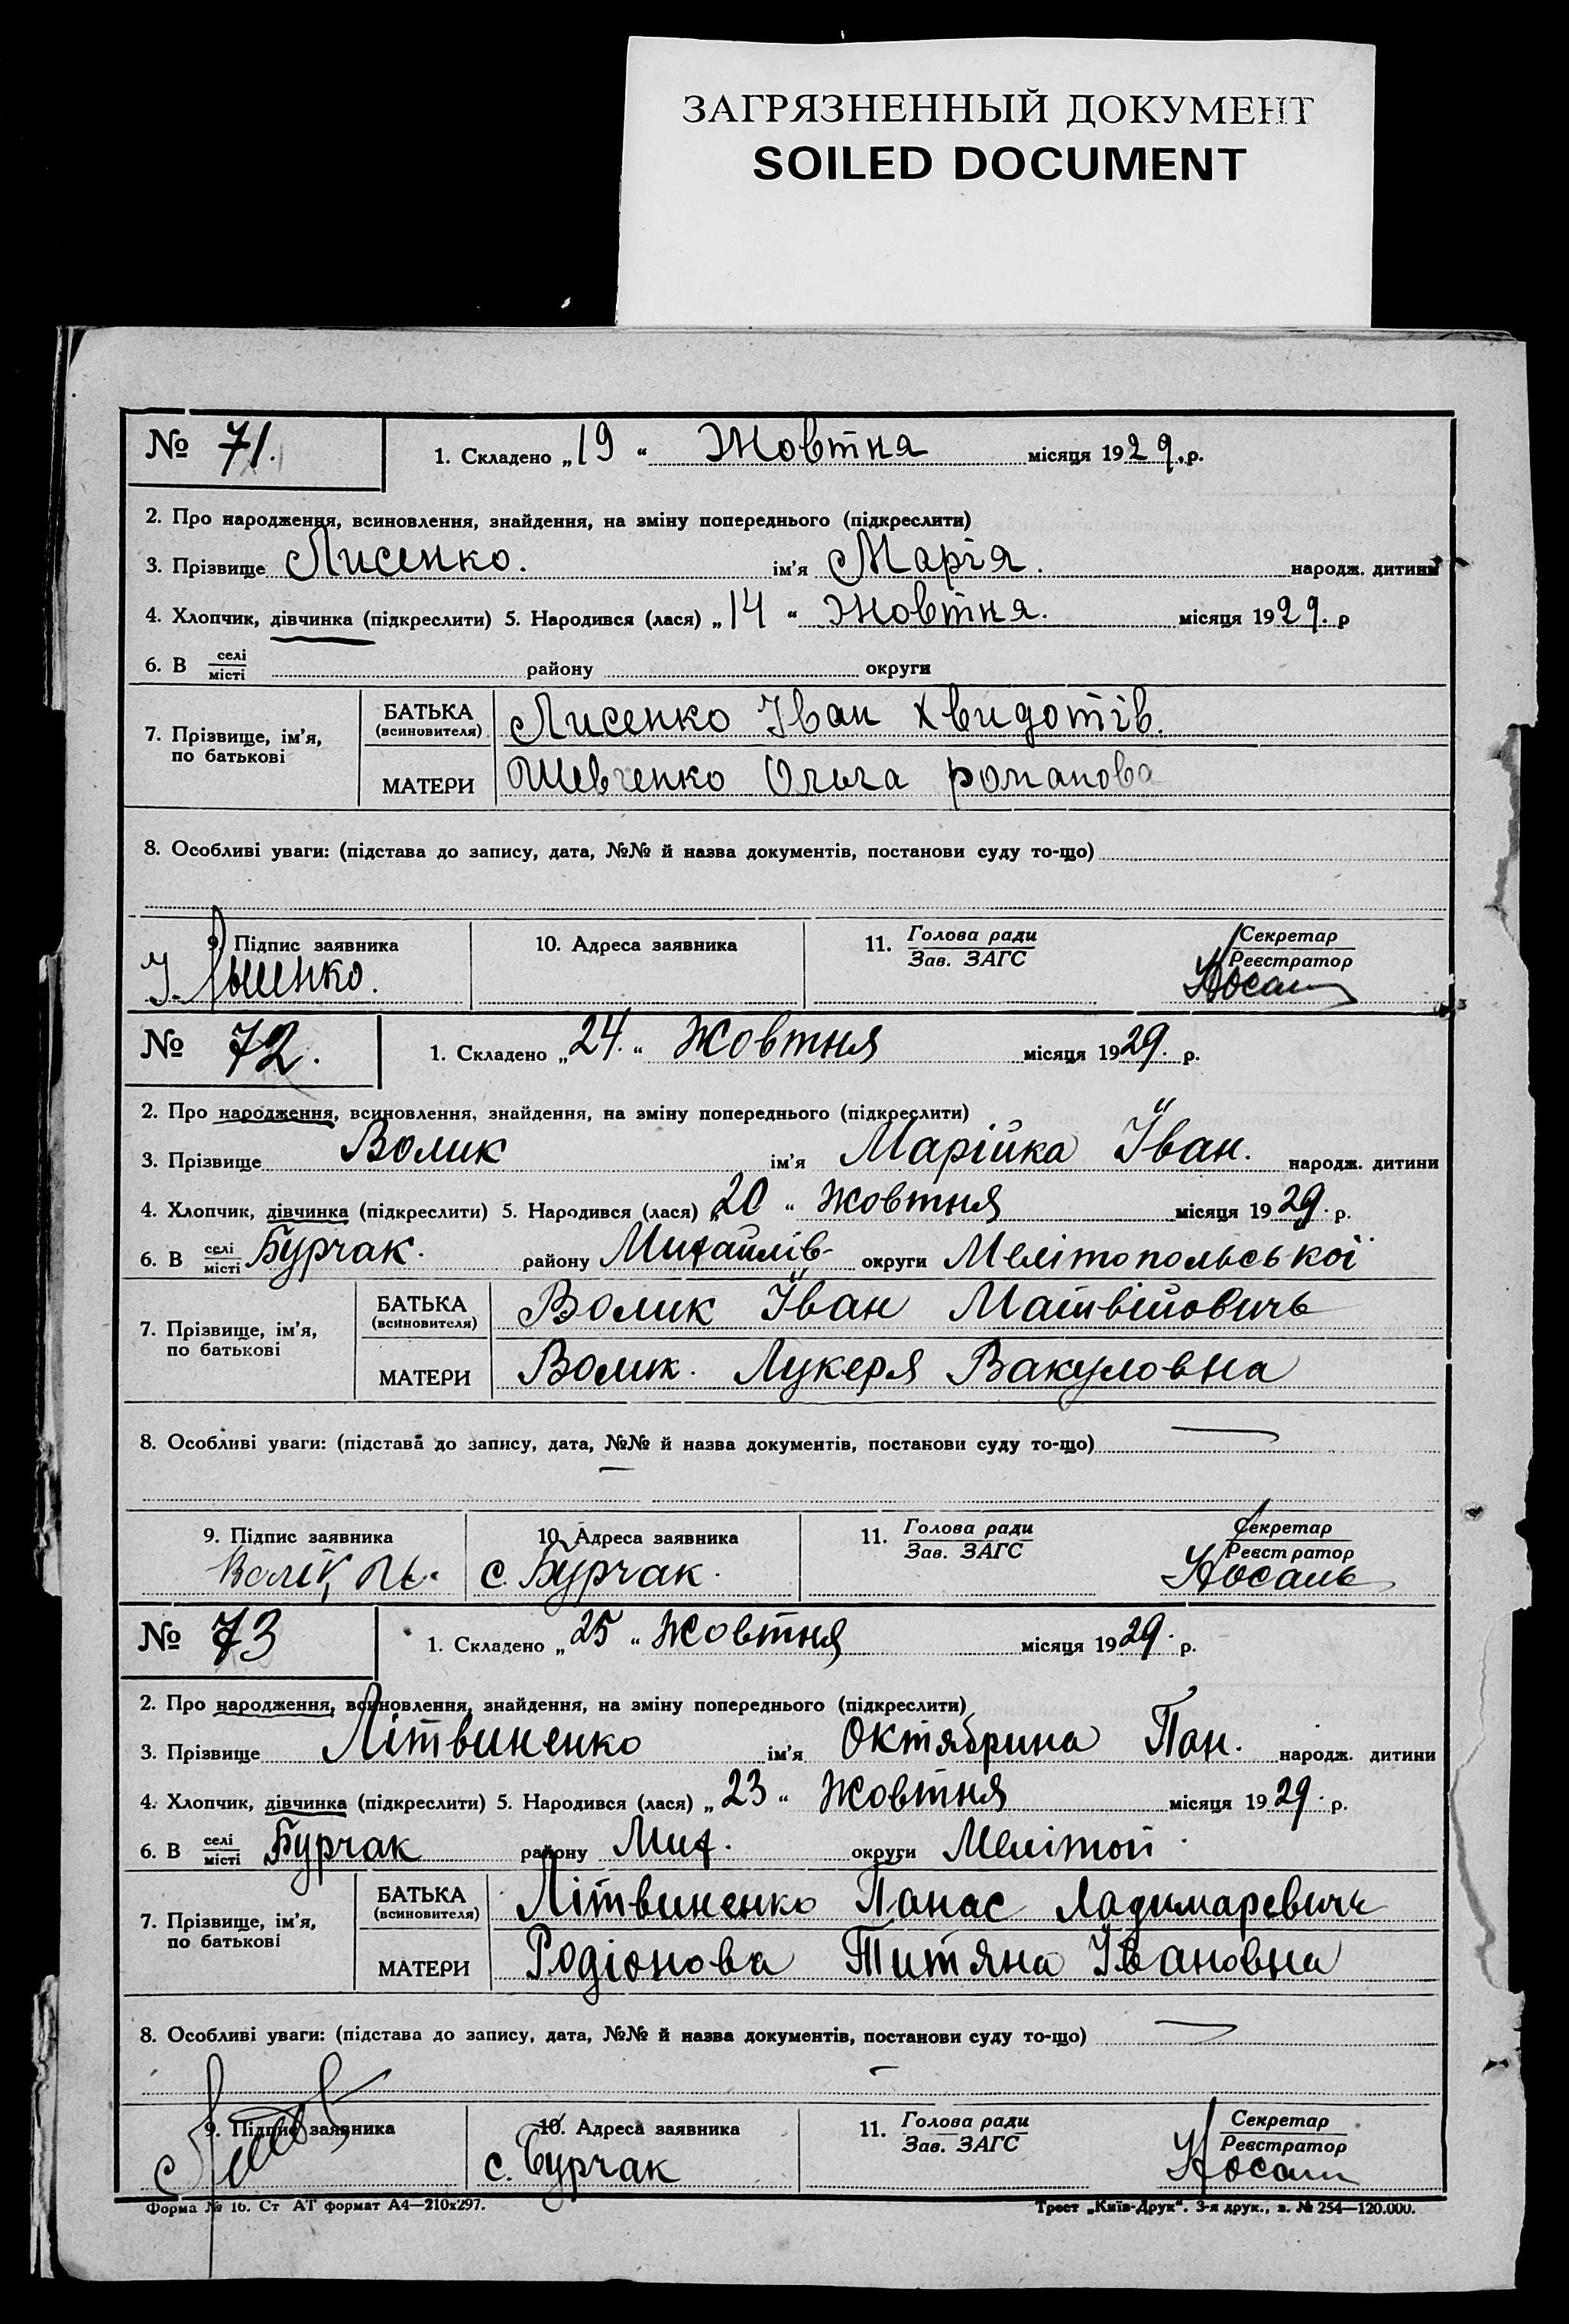 ЗАГРЯЗНЕННЫЙ ДОКУМЕНТ
SOILED DOCUMENT
№ 71. 1. Складено „19“ Жовтня місяця 1929. р.
2. Про народження, всиновлення, знайдення, на зміну попереднього (підкреслити)
3. Прізвище Лисенко. ім'я Марія. народж. дитини
4. Хлопчик, дівчинка (підкреслити) 5. Народився (лася) „14“ Жовтня. місяця 1929. р
6. В селі місті району округи
7. Прізвище, ім'я, по батькові
БАТЬКА (всиновителя) Лисенко Іван Хвидотів.
МАТЕРИ Шевченко Ольга романова
8. Особливі уваги: (підстава до запису, дата, №№ й назва документів, постанови суду то-що)
9. Підпис заявника 10. Адреса заявника 11. Голова ради Зав. ЗАГС Секретар Реєстратор
№ 72. 1. Складено „24.“ Жовтня місяця 1929. р.
2. Про народження, всиновлення, знайдення, на зміну попереднього (підкреслити)
3. Прізвище Волик ім'я Марійка Їван. народж. дитини
4. Хлопчик, дівчинка (підкреслити) 5. Народився (лася) „20“ Жовтня місяця 1929. р.
6. В селі місті Бурчак. району Михайлів- округи Мелітопольської
7. Прізвище, ім'я, по батькові
БАТЬКА (всиновителя) Волик Їван Матвійовичь
МАТЕРИ Волик. Лукеря Вакуловна
8. Особливі уваги: (підстава до запису, дата, №№ й назва документів, постанови суду то-що)
9. Підпис заявника 10. Адреса заявника 11. Голова ради Зав. ЗАГС Секретар Реєстратор
с. Бурчак.
№ 73 1. Складено „25“ Жовтня місяця 1929. р.
2. Про народження, всиновлення, знайдення, на зміну попереднього (підкреслити)
3. Прізвище Літвиненко ім'я Октябрина Пан. народж. дитини
4. Хлопчик, дівчинка (підкреслити) 5. Народився (лася) „23“ Жовтня місяця 1929. р.
6. В селі місті Бурчак району Мих. округи Мелітоп
7. Прізвище, ім'я, по батькові
БАТЬКА (всиновителя) Літвиненко Панас Ладимаревичь
МАТЕРИ Родіонова Титяна Івановна
8. Особливі уваги: (підстава до запису, дата, №№ й назва документів, постанови суду то-що)
9. Підпис заявника 10. Адреса заявника 11. Голова ради Зав. ЗАГС Секретар Реєстратор
с. Бурчак
Форма № 16. Ст АТ формат А4—210х297. Трест „Київ-Друк“. 3-я друк., з. № 254—120.000.